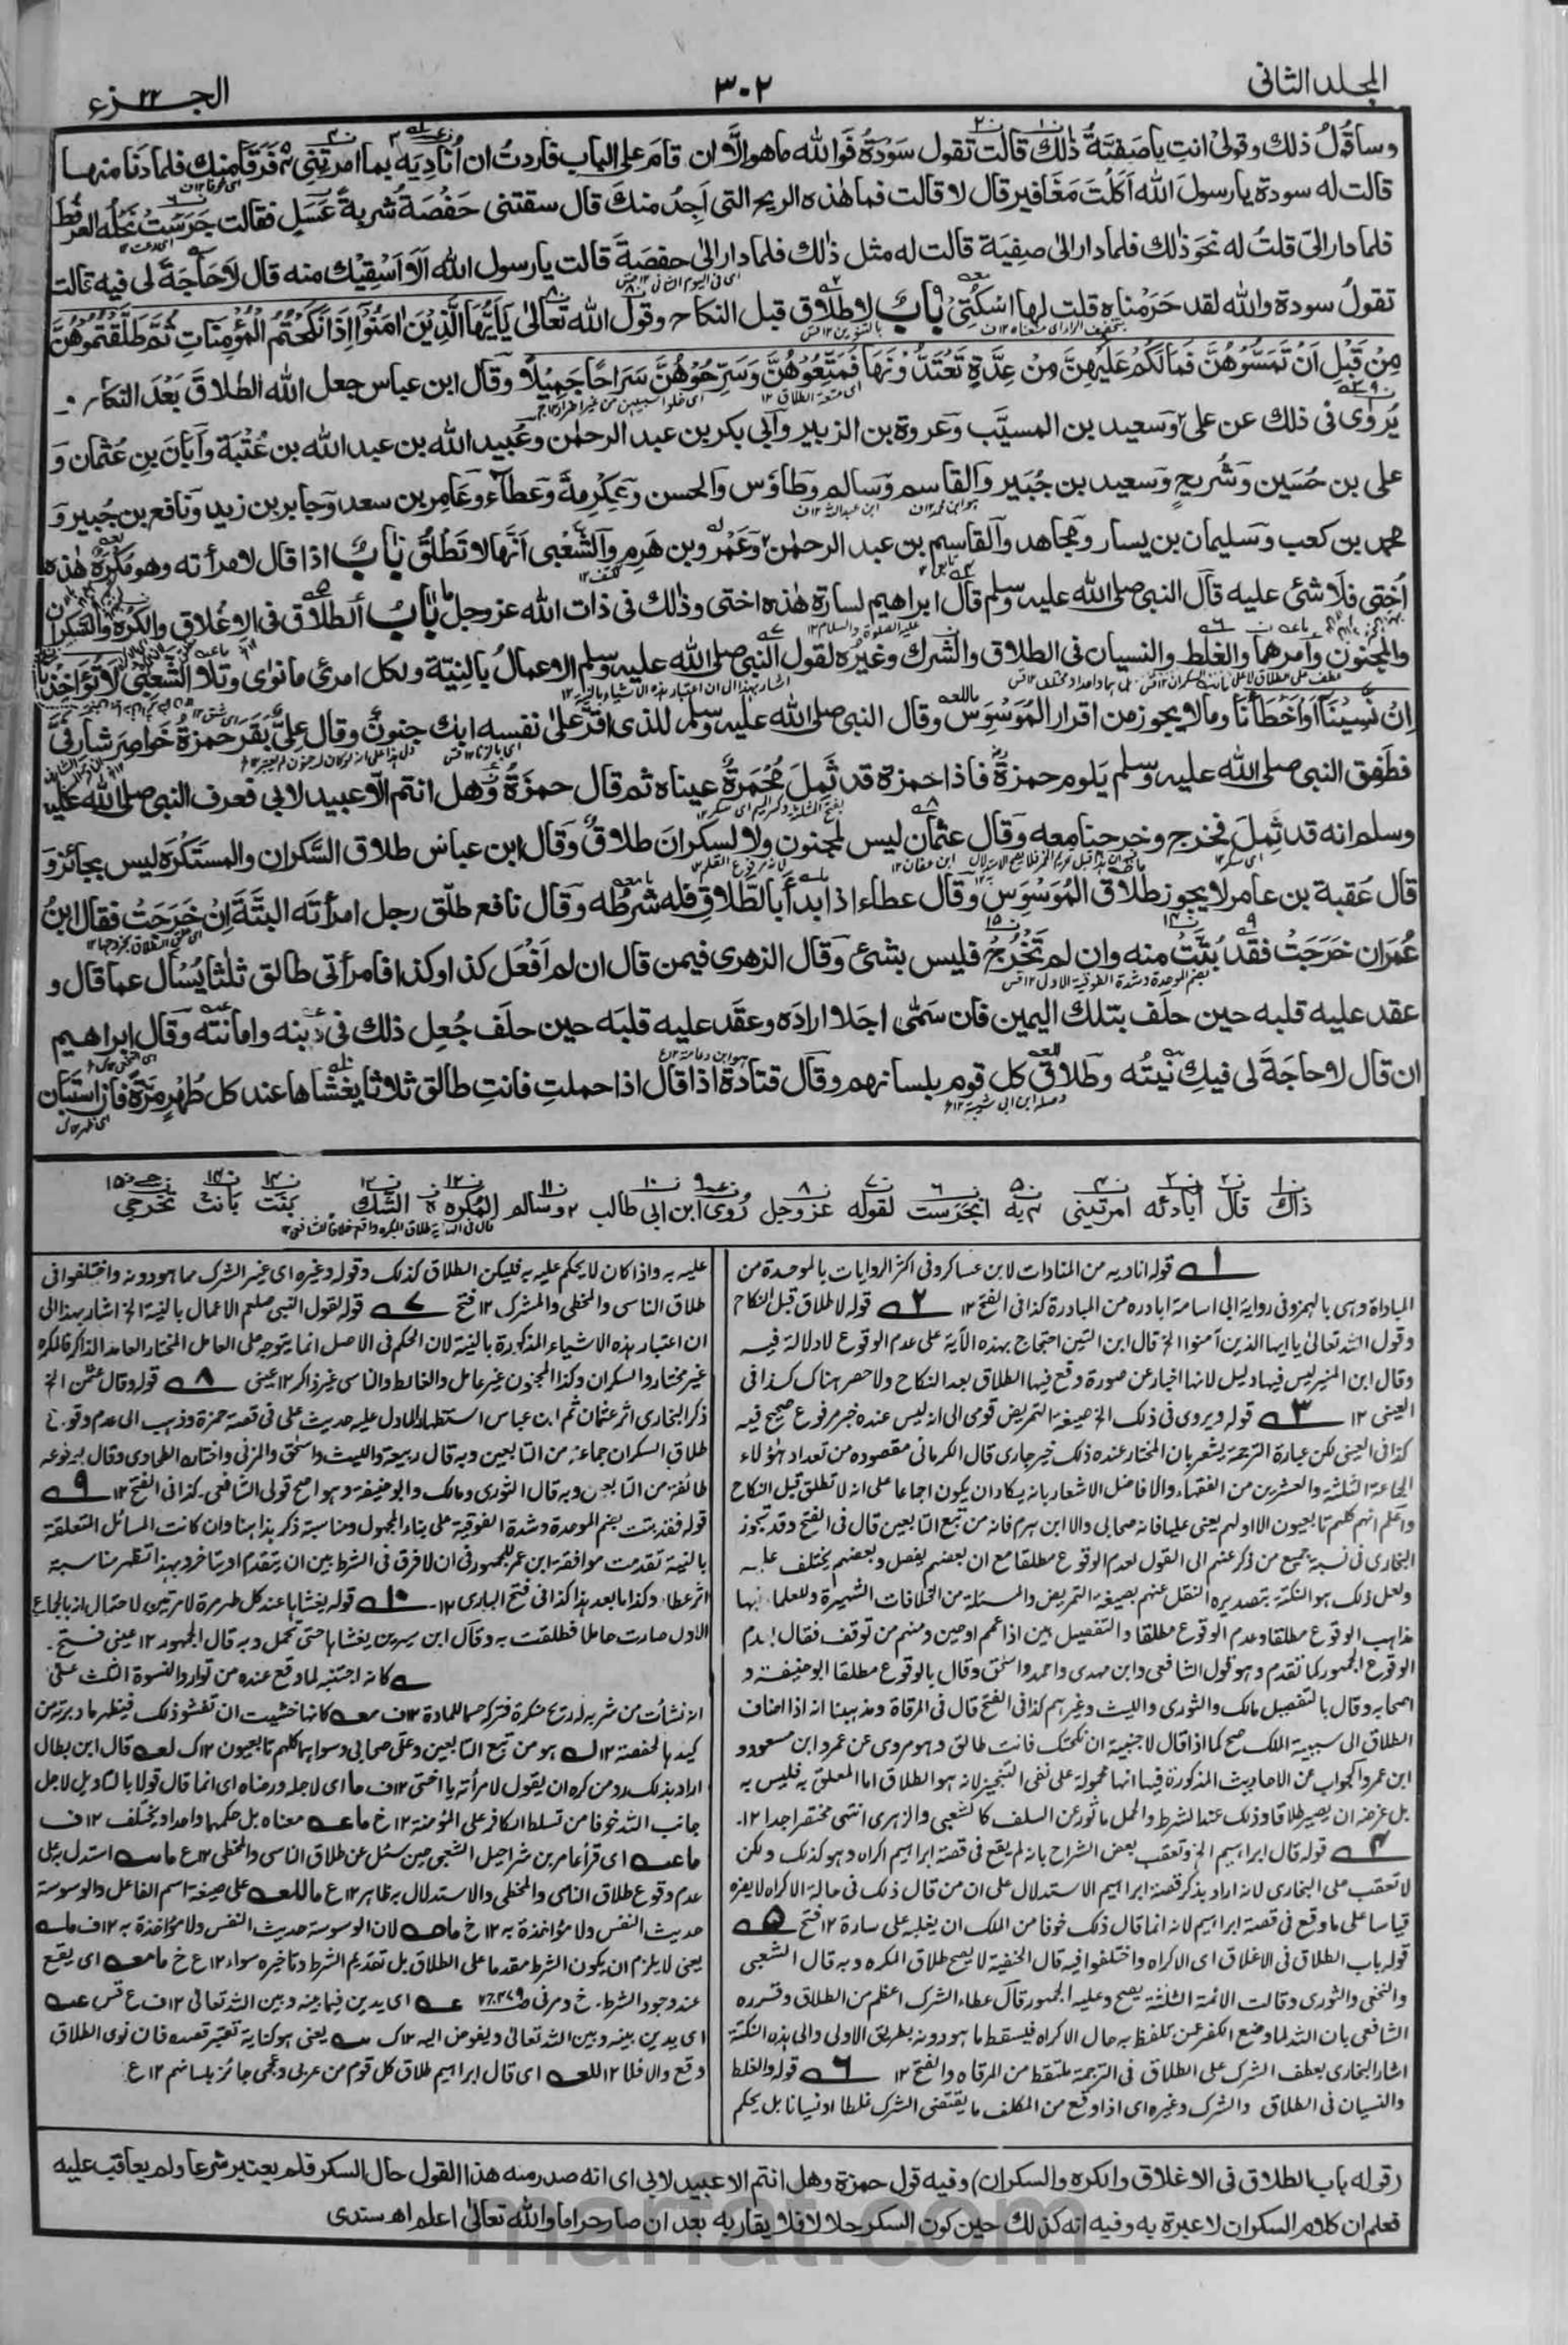 المجلد الثانى
٣٠٢
الجزء ٢٢
وساقول ذلك وقولى انتِ يا صفيّة ذلك قالت تقول سودة فوالله ما هو الا ان قام على الباب فاردت ان اناديه بما امرتنى فرقا منك فلما دنا منها
قالت له سودة يا رسول الله اكلت مغافير قال لا قالت فما هذه الريح التى اجد منك قال سقتنى حفصة شربة عسل فقالت جرست نحله العرفط
فلما دار الىّ قلت له نحو ذلك فلما دار الى صفية قالت له مثل ذلك فلما دار الى حفصة قالت يا رسول الله الا اسقيك منه قال لا حاجة لى فيه قالت
تقول سودة والله لقد حرمناه قلت لها اسكتى باب لا طلاق قبل النكاح وقول الله تعالى يايها الذين امنوا اذا نكحتم المؤمنات ثم طلقتموهن
من قبل ان تمسوهن فما لكم عليهن من عدة تعتدونها فمتعوهن وسرحوهن سراحا جميلا وقال ابن عباس جعل الله الطلاق بعد النكاح
يروى فى ذلك عن على وسعيد بن المسيب وعروة بن الزبير وابى بكر بن عبد الرحمن وعبيد الله بن عبد الله بن عتبة وابان بن عثمان و
على بن حسين وشريح وسعيد بن جبير والقاسم وسالم وطاؤس والحسن وعكرمة وعطاء وعامر بن سعد وجابر بن زيد ونافع بن جبير و
محمد بن كعب وسليمان بن يسار ومجاهد والقاسم بن عبد الرحمن وعمرو بن هرم والشعبى انها لا تطلق باب اذا قال لامرأته وهو مكره هذه
اختى فلا شئ عليه قال النبى صلى الله عليه وسلم قال ابراهيم لسارة هذه اختى وذلك فى ذات الله عز وجل باب الطلاق فى الاغلاق والكره والسكران
والمجنون وامرهما والغلط والنسيان فى الطلاق والشرك وغيره لقول النبى صلى الله عليه وسلم الاعمال بالنية ولكل امرئ ما نوى وتلا الشعبى لا تؤاخذنا
ان نسينا او اخطأنا وما لا يجوز من اقرار الموسوس وقال النبى صلى الله عليه وسلم للذى اقر على نفسه ابك جنون وقال على بقر حمزة خواصر شارفى
فطفق النبى صلى الله عليه وسلم يلوم حمزة فاذا حمزة قد ثمل محمرة عيناه ثم قال حمزة وهل انتم الا عبيد لابى فعرف النبى صلى الله عليه
وسلم انه قد ثمل فخرج وخرجنا معه وقال عثمان ليس لمجنون ولا لسكران طلاق وقال ابن عباس طلاق السكران والمستكره ليس بجائز و
قال عقبة بن عامر لا يجوز طلاق الموسوس وقال عطاء اذا بدأ بالطلاق فله شرطه وقال نافع طلّق رجل امرأته البتة ان خرجت فقال ابن
عمر ان خرجت فقد بتت منه وان لم تخرج فليس بشئ وقال الزهرى فيمن قال ان لم افعل كذا وكذا فامرأتى طالق ثلثا يسأل عما قال و
عقد عليه قلبه حين حلف بتلك اليمين فان سمى اجلا اراده وعقد عليه قلبه حين حلف جعل ذلك فى دينه وامانته وقال ابراهيم
ان قال لا حاجة لى فيك نيته وطلاق كل قوم بلسانهم وقال قتادة اذا قال اذا حملت فانت طالق ثلاثا يغشاها عند كل طهر مرة فان استبان
ذاك قال أبادئه امرتينى به انجرست لقوله عز وجل روى ابن ابى طالب وسالم المكره الشك بنت بانت تخرجى
١ قوله اناديه من المنادات لابن عساكر وفى اكثر الروايات بالموحدة من
المباداة وهى بالهمز وفى رواية ابى اسامة ابادره من المبادرة كذا فى الفتح ١٢ ٢ قوله لا طلاق قبل النكاح
وقول الله تعالى يا ايها الذين آمنوا الخ قال ابن التين احتجاج بهذه الآية على عدم الوقوع لا دلالة فيه
وقال ابن المنير ليس فيها دليل لانها اخبار عن صورة وقع فيها الطلاق بعد النكاح ولا حصر هناك كذا فى
العينى ١٢ ٣ قوله ويروى فى ذلك الخ صيغة التمريض قومى الى انه ليس عنده خبر مرفوع صحيح فيه
كذا فى العينى لكن عبارة الترجمة يشعر بان المختار عنده ذلك خير جارى قال الكرمانى مقصوده من تعداد هؤلاء
الجماعة الثلثة والعشرين من الفقهاء والافاضل الاشعار بانه يكاد ان يكون اجماعا على انه لا تطلق قبل النكاح
واعلم انهم كلهم تابعيون الا اولهم يعنى عليا فانه صحابى والا ابن هرم فانه من تبع التابعين قال فى الفتح وقد تجوز
البخارى فى نسبة جميع من ذكر عنهم الى القول لعدم الوقوع مطلقا مع ان بعضهم يفصل وبعضهم يختلف عليه
ولعل ذلك هو النكتة بتصديره النقل عنهم بصيغة التمريض والمسئلة من الخلافات الشهيرة وللعلماء فيها
مذاهب الوقوع مطلقا وعدم الوقوع مطلقا والتفصيل بين اذا عمم او عين ومنهم من توقف فقال بعدم
الوقوع الجمهور كما تقدم وهو قول الشافعى وابن مهدى واحمد واسحق وقال بالوقوع مطلقا ابو حنيفة و
اصحابه وقال بالتفصيل مالك والثورى والليث وغيرهم كذا فى الفتح قال فى المرقاة ومذهبنا انه اذا اضاف
الطلاق الى سببية الملك صح كما اذا قال لاجنبية ان نكحتك فانت طالق وهو مروى عن عمر وابن مسعود و
ابن عمر والجواب عن الاحاديث المذكورة فيها انها محمولة على نفى التنجيز لانه هو الطلاق اما المعلق به فليس به
بل عرضه ان يصير طلاقا وذلك عند الشرط والحمل ماثور عن السلف كالشعبى والزهرى انتهى مختصرا جدا ١٢
٤ قوله قال ابراهيم الخ وتعقب بعض الشراح بانه لم يقع فى قصة ابراهيم اكراه وهو كذلك ولكن
لا تعقب على البخارى لانه اراد بذكر قصة ابراهيم الاستدلال على ان من قال ذلك فى حالة الاكراه لا يضره
قياسا على ما وقع فى قصة ابراهيم لانه انما قال ذلك خوفا من الملك ان يغلبه على سارة ١٢ فتح ٥
قوله باب الطلاق فى الاغلاق اى الاكراه واختلفوا فيه قال الحنفية لا يصح طلاق المكره وبه قال الشعبى
والنخعى والثورى وقالت الائمة الثلثة يصح وعليه الجمهور قال عطاء الشرك اعظم من الطلاق وقرره
الشافعى بان الله لما وضع الكفر عمن تلفظ به حال الاكراه فيسقط ما هو دونه بطريق الاولى والى هذه النكتة
اشار البخارى بعطف الشرك على الطلاق فى الترجمة ملتقط من المرقاة والفتح ١٢ ٦ قوله والغلط
والنسيان فى الطلاق والشرك وغيره اى اذا وقع من المكلف ما يقتضى الشرك غلطا او نسيانا بل يحكم
عليه به واذا كان لا يحكم عليه به فليكن الطلاق كذلك وقوله وغيره اى غير الشرك مما هو دونه واختلفوا فى
طلاق الناسى والمخطى والمشرك ١٢ فتح ٧ قوله لقول النبى صلعم الاعمال بالنية الخ اشار بهذا الى
ان اعتبار هذه الاشياء المذكورة بالنية لان الحكم فى الاصل انما يتوجه على العامل المختار العامد الذاكر فالمكره
غير مختار والسكران وكذا المجنون غير عامل والغالط والناسى غير ذاكر ١٢ عينى ٨ قوله وقال عثمن الخ
ذكر البخارى اثر عثمان ثم ابن عباس استظهارا لما دل عليه حديث على فى قصة حمزة وذهب الى عدم وقوع
طلاق السكران جماعة من التابعين وبه قال ربيعة والليث واسحق والمزنى واختاره الطحاوى وقال بوقوعه
طائفة من التابعين وبه قال الثورى ومالك وابو حنيفة وهو اصح قولى الشافعى كذا فى الفتح ١٢ ٩
قوله فقد بتت بضم الموحدة وشدة الفوقية على بناء المجهول ومناسبة ذكر هذا هنا وان كانت المسائل المتعلقة
بالنية تقدمت موافقة ابن عمر للجمهور فى ان لا فرق فى الشرط بين ان يتقدم او يتاخر وبهذا تظهر مناسبة
اثر عطاء وكذا ما بعد هذا كذا فى فتح البارى ١٢ ١٠ قوله يغشاها عند كل طهر مرة لا مرتين لاحتمال انه بالجماع
الاول صارت حاملا فطلقت به وقال ابن سيرين يغشاها حتى تحمل وبه قال الجمهور ١٢ عينى فتح
كانه اجتنبه لما وقع عنده من توارد النسوة الثلث على
انه نشأت من شربه له ريح منكرة فتركه حسما للمادة ١٢ ف كانها خشيت ان تفشو ذلك فيظهر ما دبرته من
كيدها لحفصة ١٢ ك هو من تبع التابعين وعلى صحابى وسواهما كلهم تابعيون ١٢ ك قال ابن بطال
اراد بذلك رد من كره ان يقول لامرأته يا اختى ١٢ ف اى لاجله ورضاه اى انما قال قولا بالتاديل لاجل
جانب الله خوفا من تسلط الكافر على المؤمنة ١٢ خ معناه بل حكمها واحد او يختلف ١٢ ف
اى قرأ عامر بن شراحيل الشعبى حين سئل عن طلاق الناسى والمخطى ١٢ ع استدل به على
عدم وقوع طلاق الناسى والمخطى والاستدلال به ظاهر ١٢ ع على صيغة اسم الفاعل والوسوسة
حديث النفس ولا مؤاخذة به ١٢ خ لان الوسوسة حديث النفس ولا مؤاخذة به ١٢ ف
يعنى لا يلزم ان يكون الشرط مقدما على الطلاق بل تقديم الشرط وتاخيره سواء ١٢ ع خ اى يقع
عند وجود الشرط اى يدين فيما بينه وبين الله تعالى ١٢ ف ع قس
اى يدين بينه وبين الله تعالى ويفوض اليه ١٢ ك يعنى هو كناية تعتبر قصده فان نوى الطلاق
وقع والا فلا ١٢ اى قال ابراهيم طلاق كل قوم من عربى وعجمى جائز بلسانهم ١٢ ع
(قوله باب الطلاق فى الاغلاق والكره والسكران) وفيه قول حمزة وهل انتم الا عبيد لابى اى انه صدر منه هذا القول حال السكر فلم يعتبر شرعا ولم يعاقب عليه
فعلم ان كلام السكران لا عبرة به وفيه انه كذلك حين كون السكر حلالا فلا يقاربه بعد ان صار حراما والله تعالى اعلم اه سندى
marfat.com